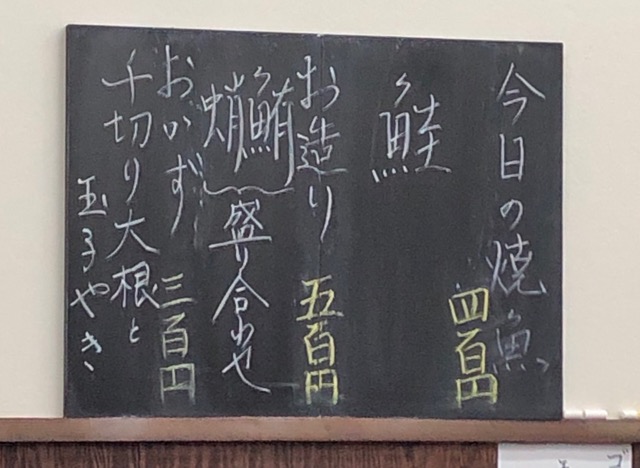 今日の焼魚
四百円
鮭
お造り
五百円
鮪
蛸
盛り合わせ
おかず
三百円
千切り大根と
玉子やき